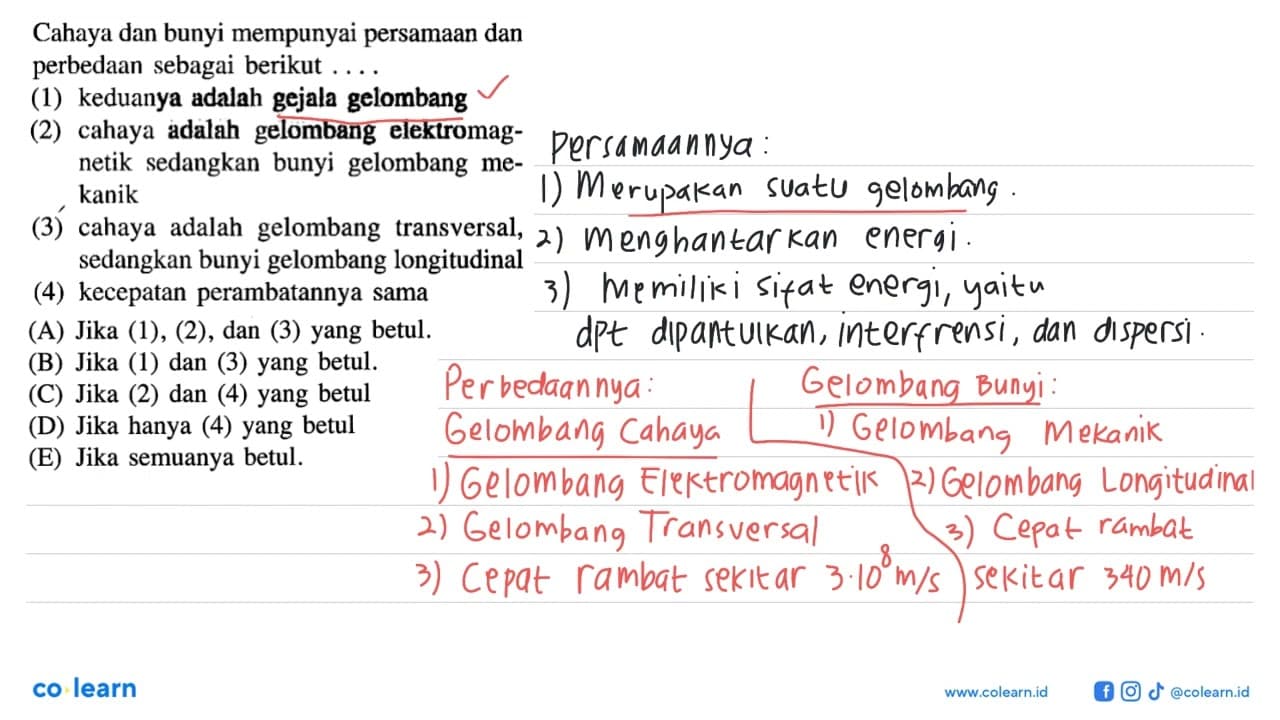 Cahaya dan bunyi mempunyai persamaan dan
perbedaan sebagai berikut . . . .
(1) keduanya adalah gejala gelombang
(2) cahaya adalah gelombang elektromag-
netik sedangkan bunyi gelombang me-
kanik
(3) cahaya adalah gelombang transversal,
sedangkan bunyi gelombang longitudinal
(4) kecepatan perambatannya sama
(A) Jika (1), (2), dan (3) yang betul.
(B) Jika (1) dan (3) yang betul.
(C) Jika (2) dan (4) yang betul
(D) Jika hanya (4) yang betul
(E) Jika semuanya betul.
Persamaannya :
1) Merupakan suatu gelombang .
2) Menghantarkan energi .
3) Memiliki sifat energi, yaitu
dpt dipantulkan, interfrensi, dan dispersi .
Perbedaannya :
Gelombang Cahaya
1) Gelombang Elektromagnetik
2) Gelombang Transversal
3) Cepat rambat sekitar 3.10⁸ m/s
Gelombang Bunyi :
1) Gelombang Mekanik
2) Gelombang Longitudinal
3) Cepat rambat
sekitar 340 m/s
co learn
www.colearn.id
@colearn.id